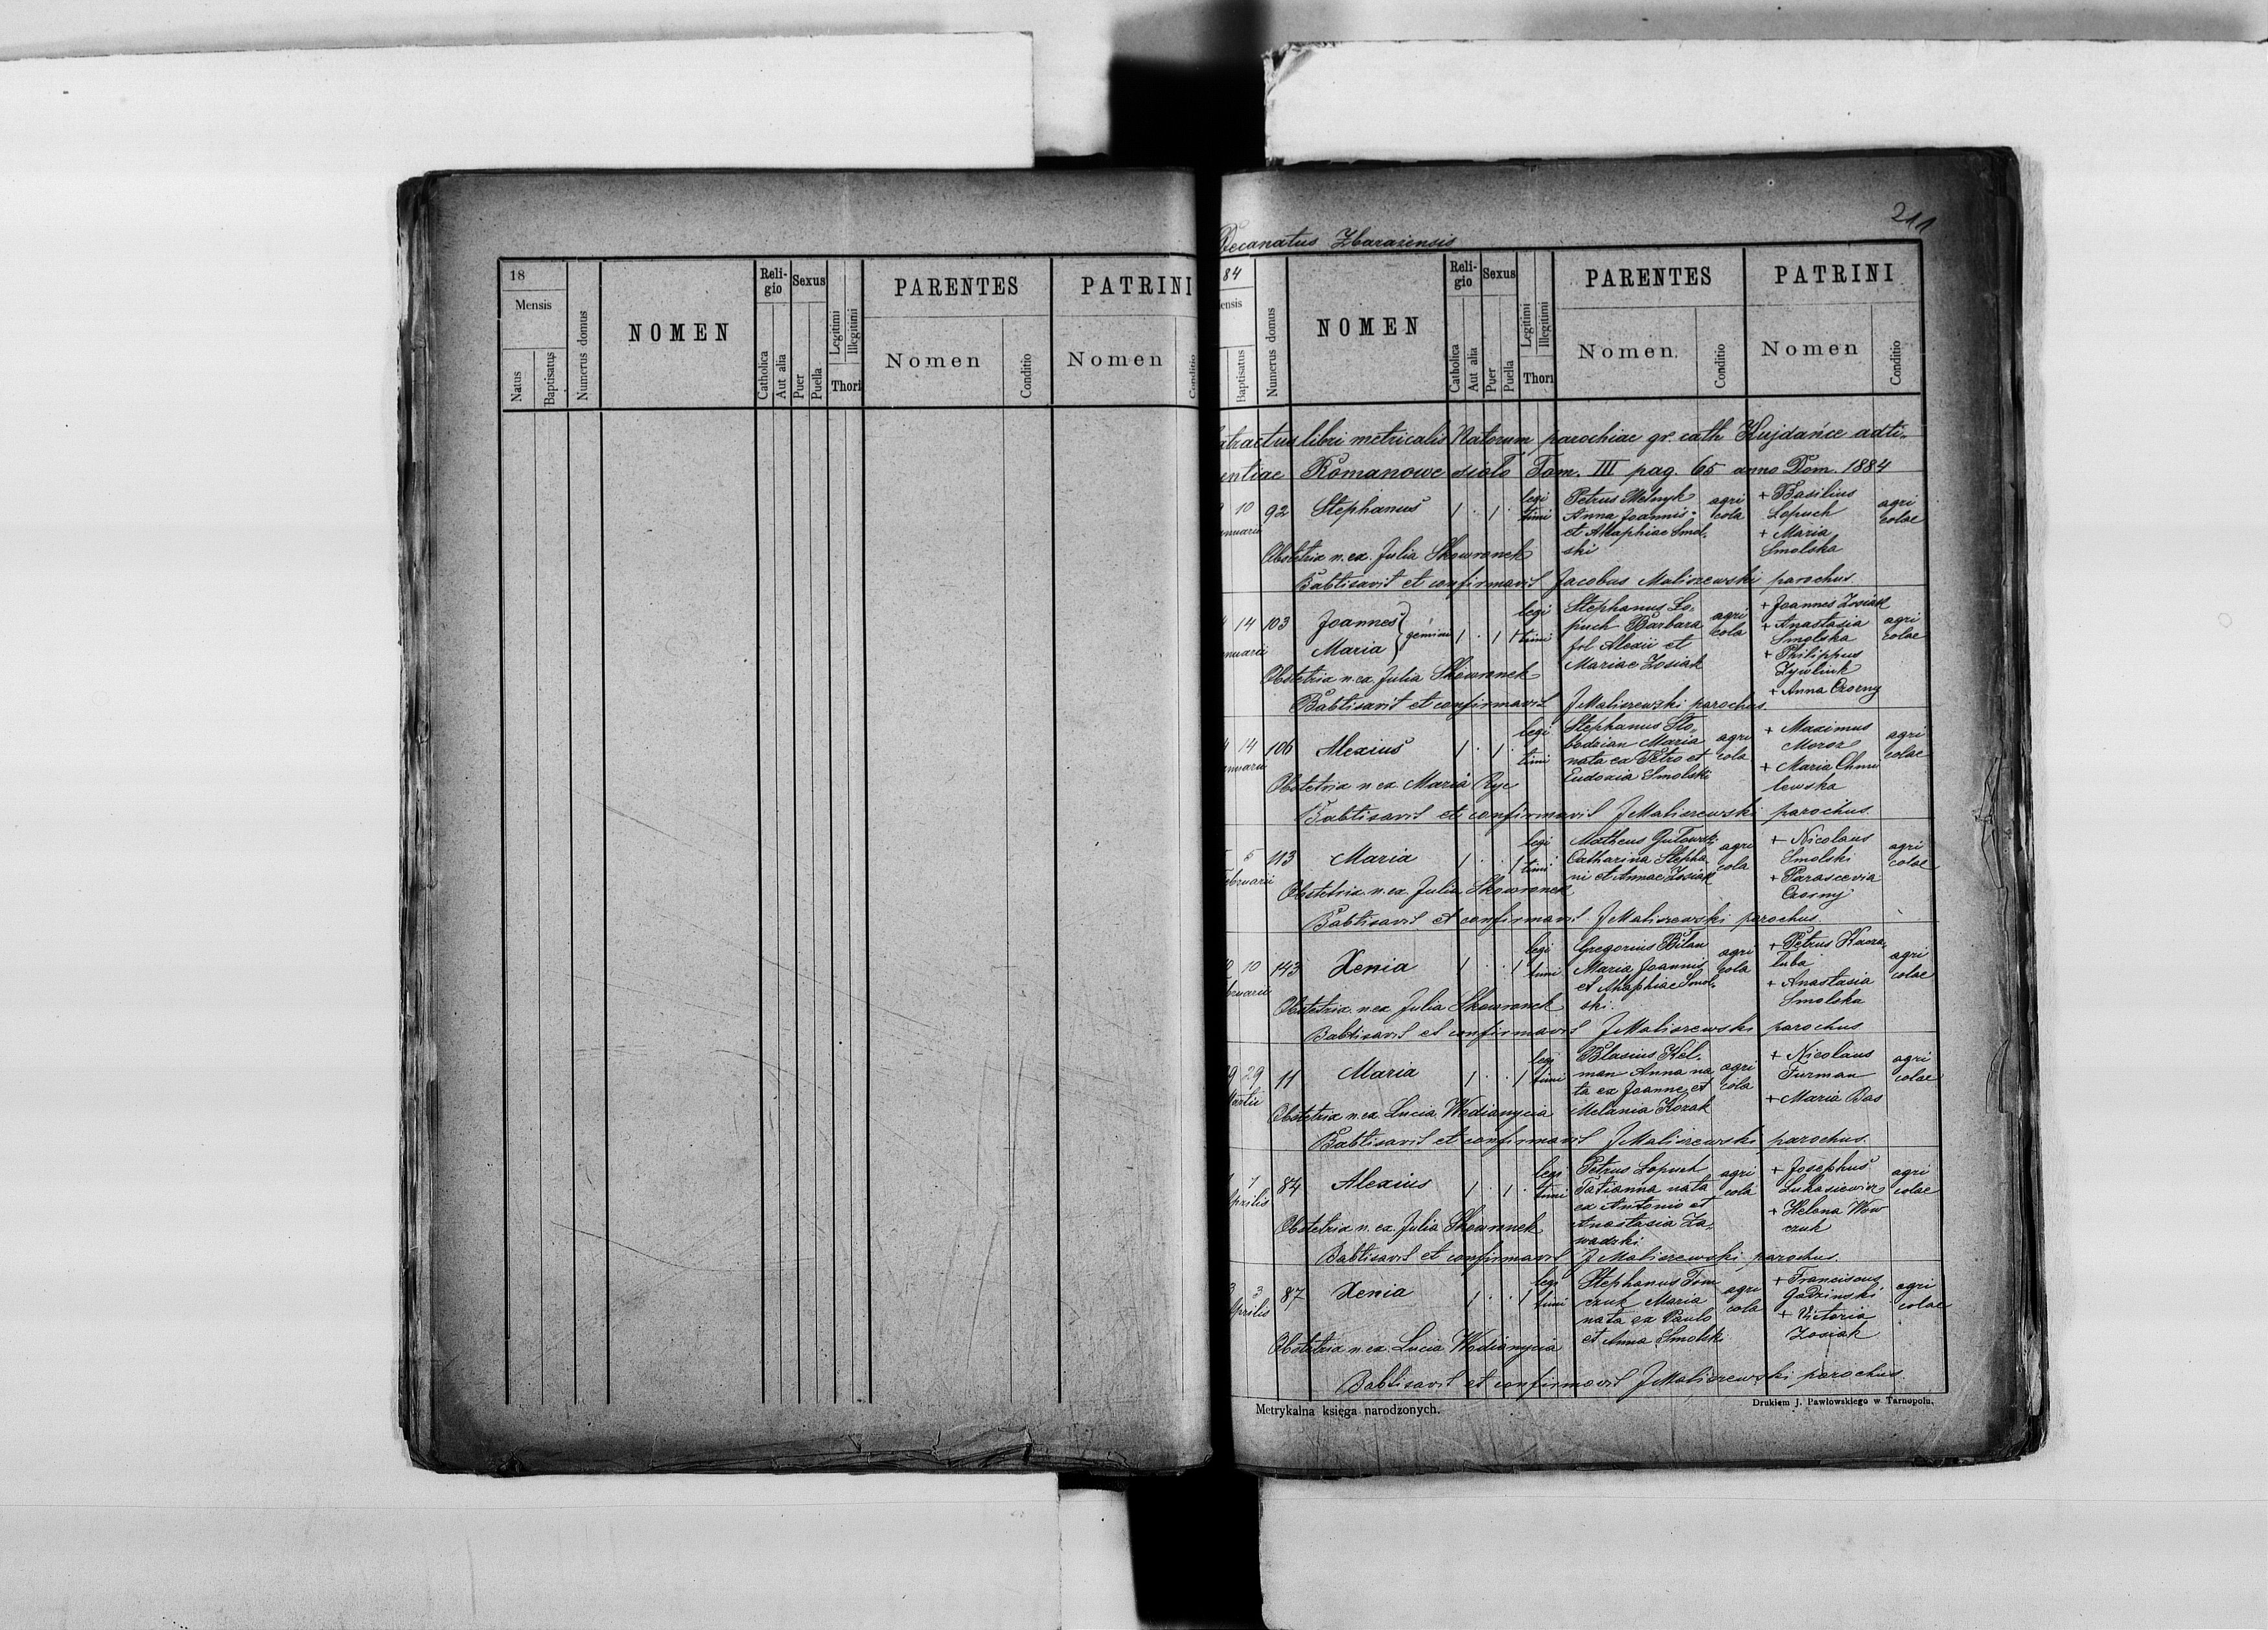 211
Decanatus Zbaraziensis
18
Mensis
Natus
Baptisatus
Numerus domus
NOMEN
Reli-
gio
Catholica
Aut alia
Sexus
Puer
Puella
Legitimi
Illegitimi
Thori
PARENTES
Nomen
Conditio
PATRINI
Nomen
Conditio
84
ensis
Baptisatus
Numerus domus
NOMEN
Reli-
gio
Catholica
Aut alia
Sexus
Puer
Puella
Legitimi
Illegitimi
Thori
PARENTES
Nomen
Conditio
PATRINI
Nomen
Conditio
xtractus libri metricalis Natorum parochiae gr. cath Kujdańce adti-
entiae Romanowe sioło Tom. III pag. 65 anno Dom. 1884
10 92 Stephanus 1 . 1 . legi
timi
Petrus Melnyk
Anna Joannis
et Ahaphiae Smol-
ski
agri
cola
+ Basilius
Lopuch
+ Maria
Smolska
agri
colae
nuarii
Obstetrix n. ex. Julia Skowronek
Babtisavit et confirmavit Jacobus Maliszewski parochus.
14 103 Joannes
Maria
gemini 1 . 1 1 legi
timi
Stephanus Lo-
puch Barbara
fol Alexii et
Mariae Zosiak
agri
cola
+ Joannes Zosiak
+ Anastasia
Smolska
+ Philippus
Zywliuk
+ Anna Czorny
agri
colae
nuarii
Obstetrix n. ex. Julia Skowronek
Babtisavit et confirmavit J Maliszewski parochus.
14 106 Alexius 1 . 1 . legi
timi
Stephanus Slo-
bodzian Maria
nata ex Petro et
Eudoxia Smolski
agri
cola
+ Maximus
Moroz
+ Maria Chmie
lewska
agri
colae
nuarii
Obstetrix n ex Maria Ryc
Babtisavit et confirmavit J Maliszewski parochus.
5 113 Maria 1 . . 1 legi
timi
Matheus Gutowski
Catharina Stepha-
ni et Annae Zosiak
agri
cola
+ Nicolaus
Smolski
+ Parascevia
Czorny
agri
colae
ebruarii
Obstetrix n. ex. Julia Skowronek
Babtisavit et confirmavit J Maliszewski parochus.
10 143 Xenia 1 . . 1 legi
timi
Gregorius Bilan
Maria Joannis
et Ahaphiae Smol-
ski
agri
cola
+ Petrus Kacza-
luba
+ Anastasia
Smolska
agri
colae
bruarii
Obstetrix n. ex Julia Skowronek
Babtisavit et confirmavit J Maliszewski parochus
29 29 11 Maria 1 . . 1 legi
timi
Blasius Kel-
man Anna na
ta ex Joanne et
Melania Kozak
agri
cola
+ Nicolaus
Furman
+ Maria Bas
agri
colae
Martii
Obstetrix n. ex Lucia Wodianycia
Babtisavit et confirmavit J Maliszewski parochus.
7 84 Alexius 1 . 1 . legi
timi
Petrus Lopuch
Tatianna nata
ex Antonio et
Anastasia Za-
wadzki
agri
cola
+ Josephus
Lukasiewicz
+ Helena Wow
czuk
agri
colae
prilis
Obstetrix n. ex. Julia Skowronek
Babtisavit et confirmavit J Maliszewski parochus.
3 87 Xenia 1 . . 1 legi
timi
Stephanus Tom
czuk Maria
nata ex Paulo
et Anna Smolski
agri
cola
+ Franciscus
Gadzinski
+ Victoria
Zosiak
agri
colae
Aprilis
Obstetrix n. ex. Lucia Wodianycia
Babtisavit et confirmavit J Maliszewski parochus.
Metrykalna księga narodzonych.
Drukiem J. Pawłowskiego w Tarnopolu.